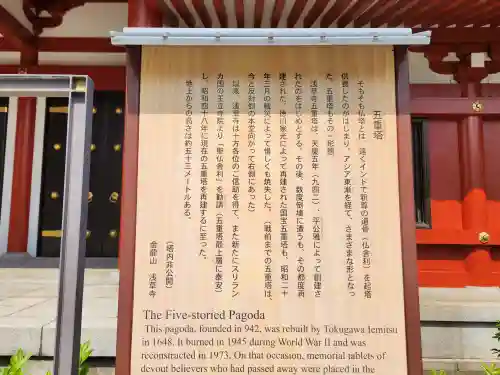 五重塔
そもそも仏塔とは、遠くインドで釈尊の遺骨(仏舎利)を起塔
供養したのがはじまり。アジア東漸を経て、さまざまな形となっ
た。五重塔もその一形態。
浅草寺五重塔は、天慶五年(九四二)、平公雅によって創建さ
れたのをはじめとする。その後、数度倒壊に遭うも、その都度再
建された。徳川家光によって再建された国宝五重塔も、昭和二十
年三月の戦災によって惜しくも焼失した。(戦前までの五重塔は、
今と反対側の本堂向かって右側にあった)
以後、浅草寺は十方各位のご信助を得て、また新たにスリラン
カ国の王立寺院より「聖仏舎利」を勧請(五重塔最上層に奉安)
し、昭和四十八年に現在の五重塔を再建するに至った。
地上からの高さは約五十三メートルである。
(塔内非公開)
金龍山 浅草寺
The Five-storied Pagoda
This pagoda, founded in 942, was rebuilt by Tokugawa Iemitsu
in 1648. It burned in 1945 during World War II and was
reconstructed in 1973. On that occasion, memorial tablets of
devout believers who had passed away were placed in the